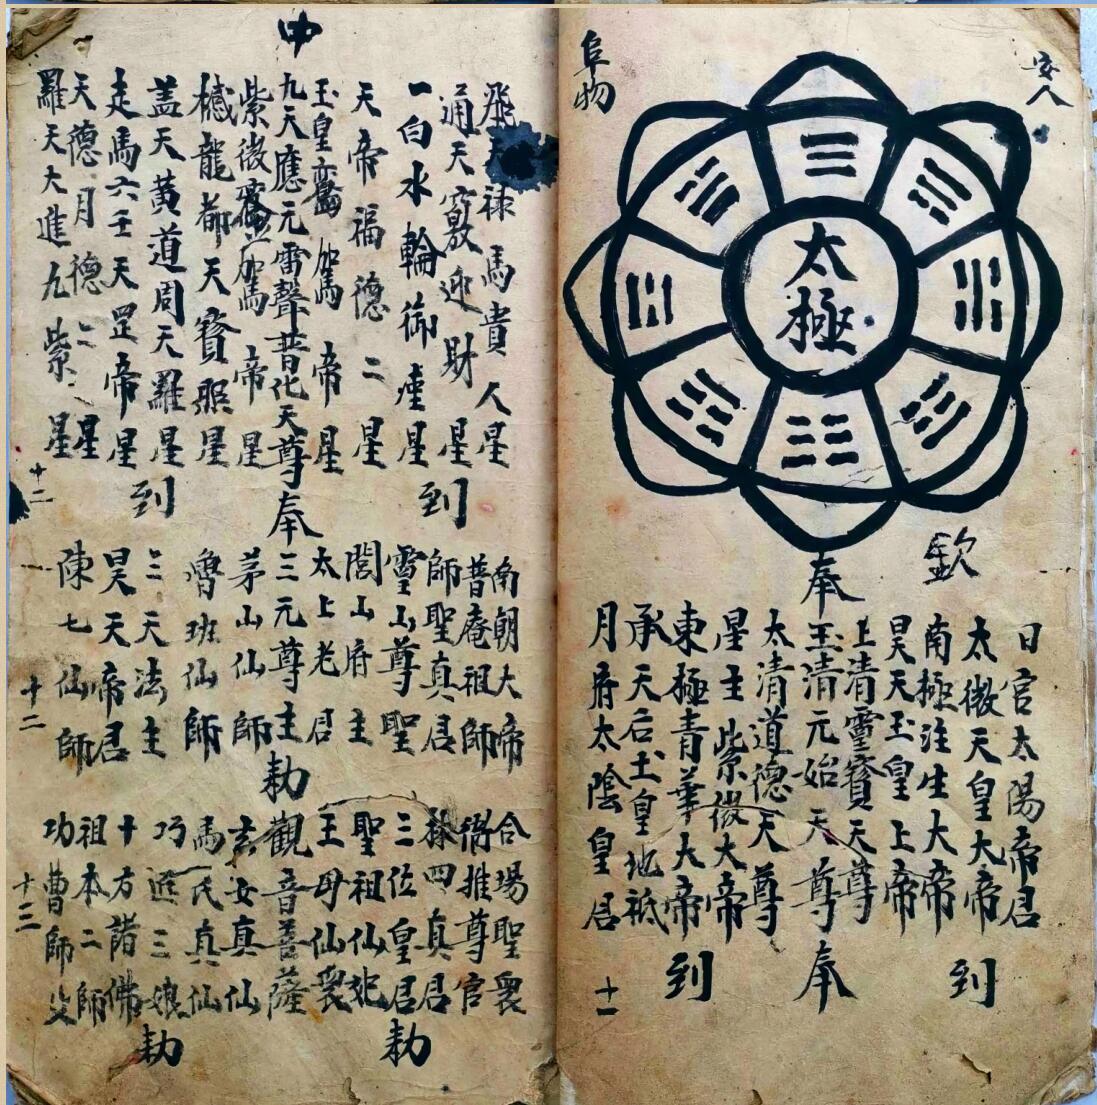 安人
阜物
太極
欽
奉
日宮太陽帝君
太微天皇大帝
南極注生大帝
昊天玉皇上帝
上清靈寶天尊
玉清元始天尊
太清道德天尊
星主紫微大帝
東極青華大帝
承天后土皇地祇
月府太陰皇君
到
奉
到
十一
中
飛天祿馬貴人星
通天竅迎財星
一白水輪御座星
天帝福德二星
玉皇鸞駕帝星
九天應元雷聲普化天尊
紫微鑾駕帝星
撼龍都天寳照星
盖天黄道周天羅星
走馬六壬天罡帝星
天德月德二星
羅天大進九紫星
到
奉
到
十二
南朝大帝
普庵祖師
師聖真君
靈山尊聖
閭山府主
太上老君
三元尊主
茅山仙師
魯班仙師
三天法主
昊天帝君
陳七仙師
十二
勅
合塲聖衆
衙推尊官
祿四真君
三位皇君
聖祖仙妃
王母仙衆
觀音菩薩
玄女真仙
馬氏真仙
巧進三娘
十方諸佛
祖本二師
功曹師父
勅
勅
十三